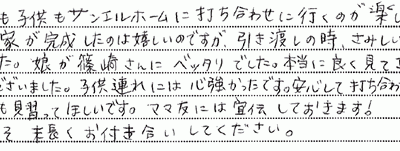 も子供もサンエルホームに打ち合わせに行くのが楽し
家が完成したのは嬉しいのですが、引き渡しの時、さみしい
た。娘が篠崎さんにベッタリでした。本当に良く見てき
ございました。子供連れには心強かったです。安心して打ち合わ
も見習ってほしいです。ママ友には宣伝しておきます!
そ 末長くお付き合いしてください。